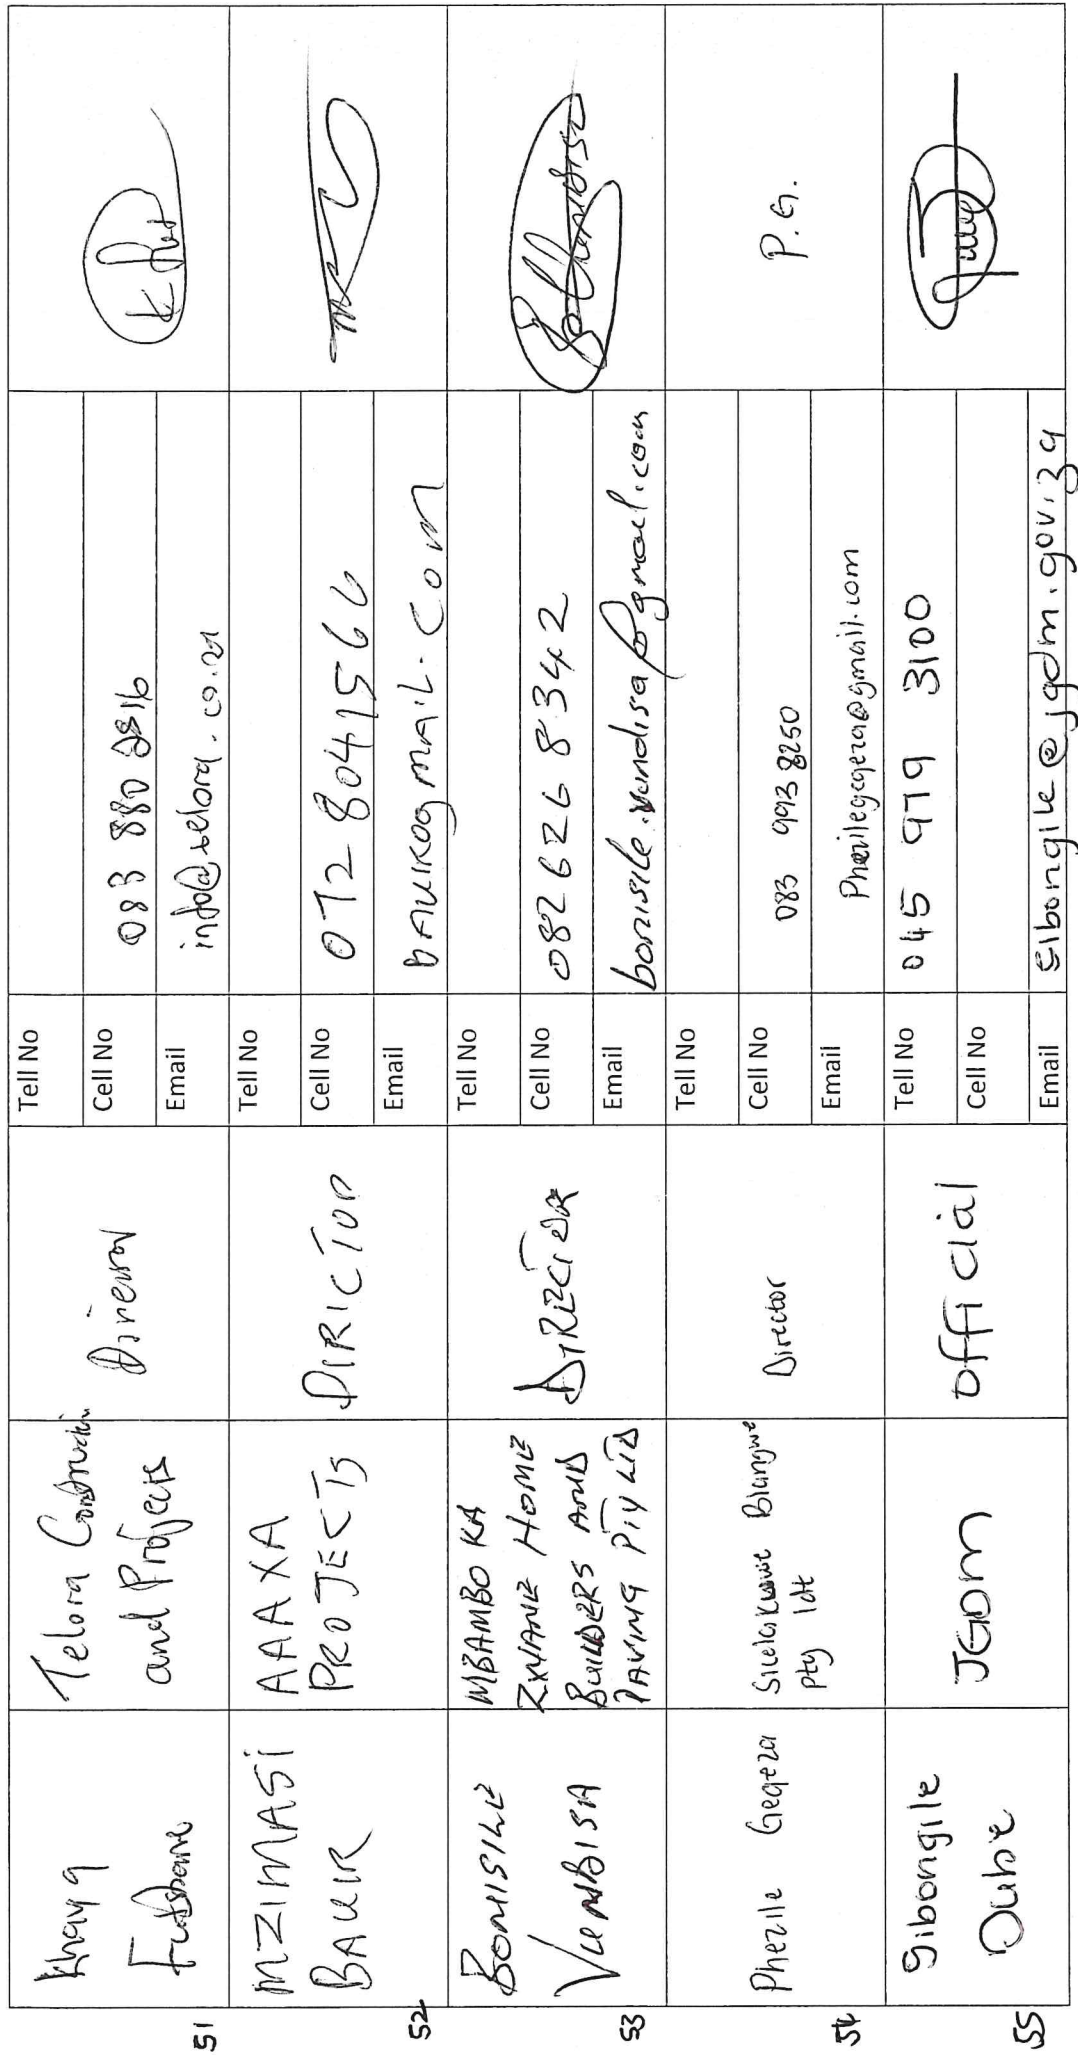 51
Khaya
Telora Construction
and Projects
Director
Tell No
Cell No
083 880 2816
Email
info@telora.co.za
52
MZIMASI
BAUIR
AAAXA
PROJECTS
DIRICTOR
Tell No
Cell No
072 8041566
Email
53
BONISILE
VUMBISA
MBAMBO KA
ZXYANE HOME
BUILDERS AND
PAVING PTY LTD
DIRECTOR
Tell No
Cell No
082 626 8342
Email
54
Phezile Gegeza
Pty ldt
Director
Tell No
Cell No
083 993 8250
Email
Phezilegegeza@gmail.com
P.G.
55
Sibongile
Dube
JGDM
Official
Tell No
045 979 3100
Cell No
Email
sibongile@jgdm.gov.za